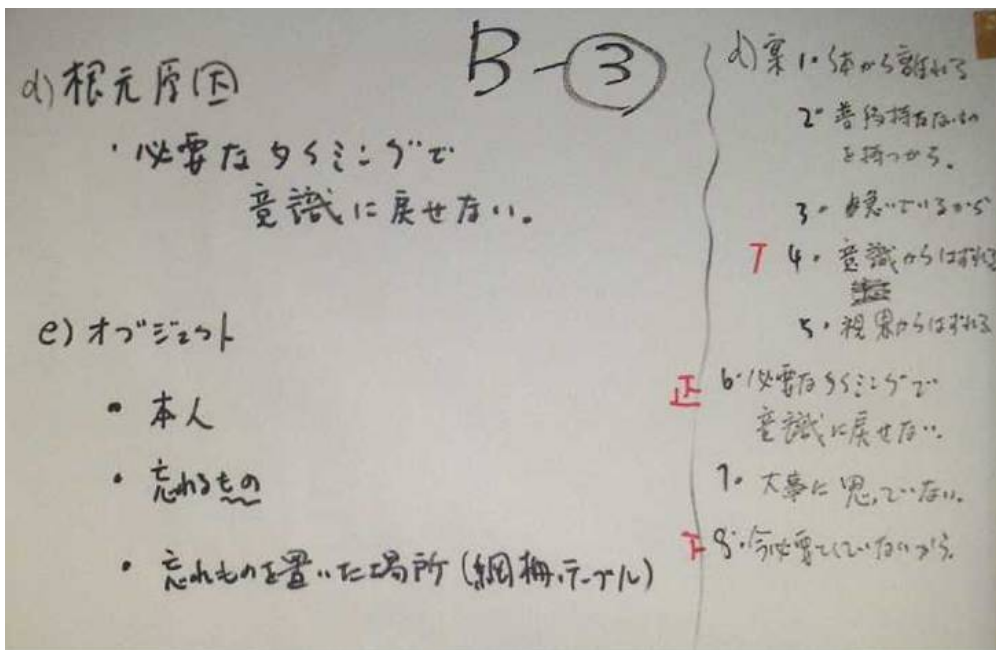 B-③
d)根元原因
・必要なタイミングで
意識に戻せない。
e)オブジェクト
・本人
・忘れるもの
・忘れものを置いた場所(網棚、テーブル)
d)案 1・体から離れる
2・普段持たないもの
を持つから。
3・急いでいるから
4・意識からはずれる
5・視界からはずれる
正 6・必要なタイミングで
意識に戻せない。
7・大事に思っていない。
8・今必要としていないから。